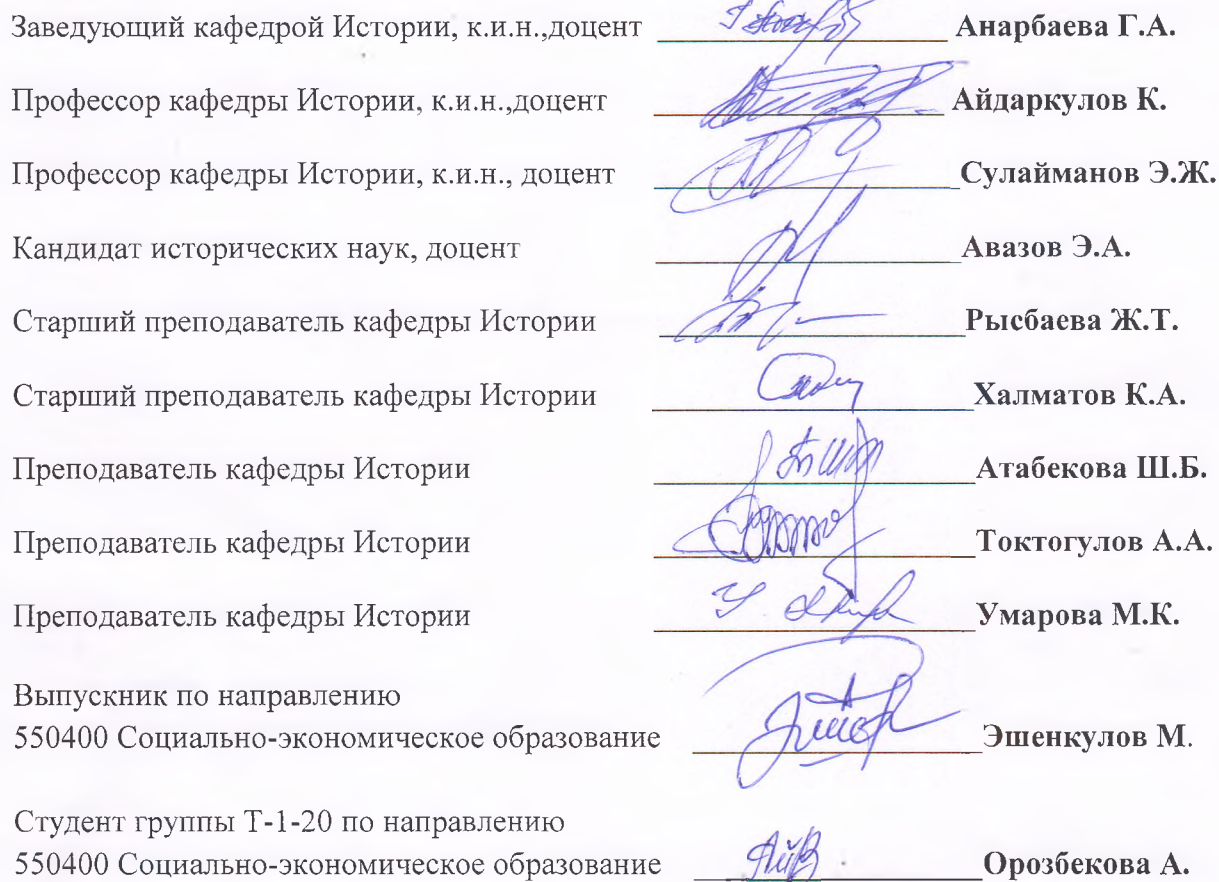 Заведующий кафедрой Истории, к.и.н.,доцент Анарбаева Г.А.
Профессор кафедры Истории, к.и.н.,доцент Айдаркулов К.
Профессор кафедры Истории, к.и.н., доцент Сулайманов Э.Ж.
Кандидат исторических наук, доцент Авазов Э.А.
Старший преподаватель кафедры Истории Рысбаева Ж.Т.
Старший преподаватель кафедры Истории Халматов К.А.
Преподаватель кафедры Истории Атабекова Ш.Б.
Преподаватель кафедры Истории Токтогулов А.А.
Преподаватель кафедры Истории Умарова М.К.
Выпускник по направлению
550400 Социально-экономическое образование Эшенкулов М.
Студент группы Т-1-20 по направлению
550400 Социально-экономическое образование Орозбекова А.